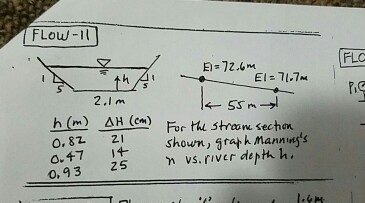 FLOW-11
h
1
5
1
5
2.1 m
El = 72.6m
El = 71.7m
55 m
h (m) ΔH (cm)
0.82 21
0.47 14
0.93 25
For the stream section
shown, graph Manning's
n vs. river depth h.
FLO
P
1.6m